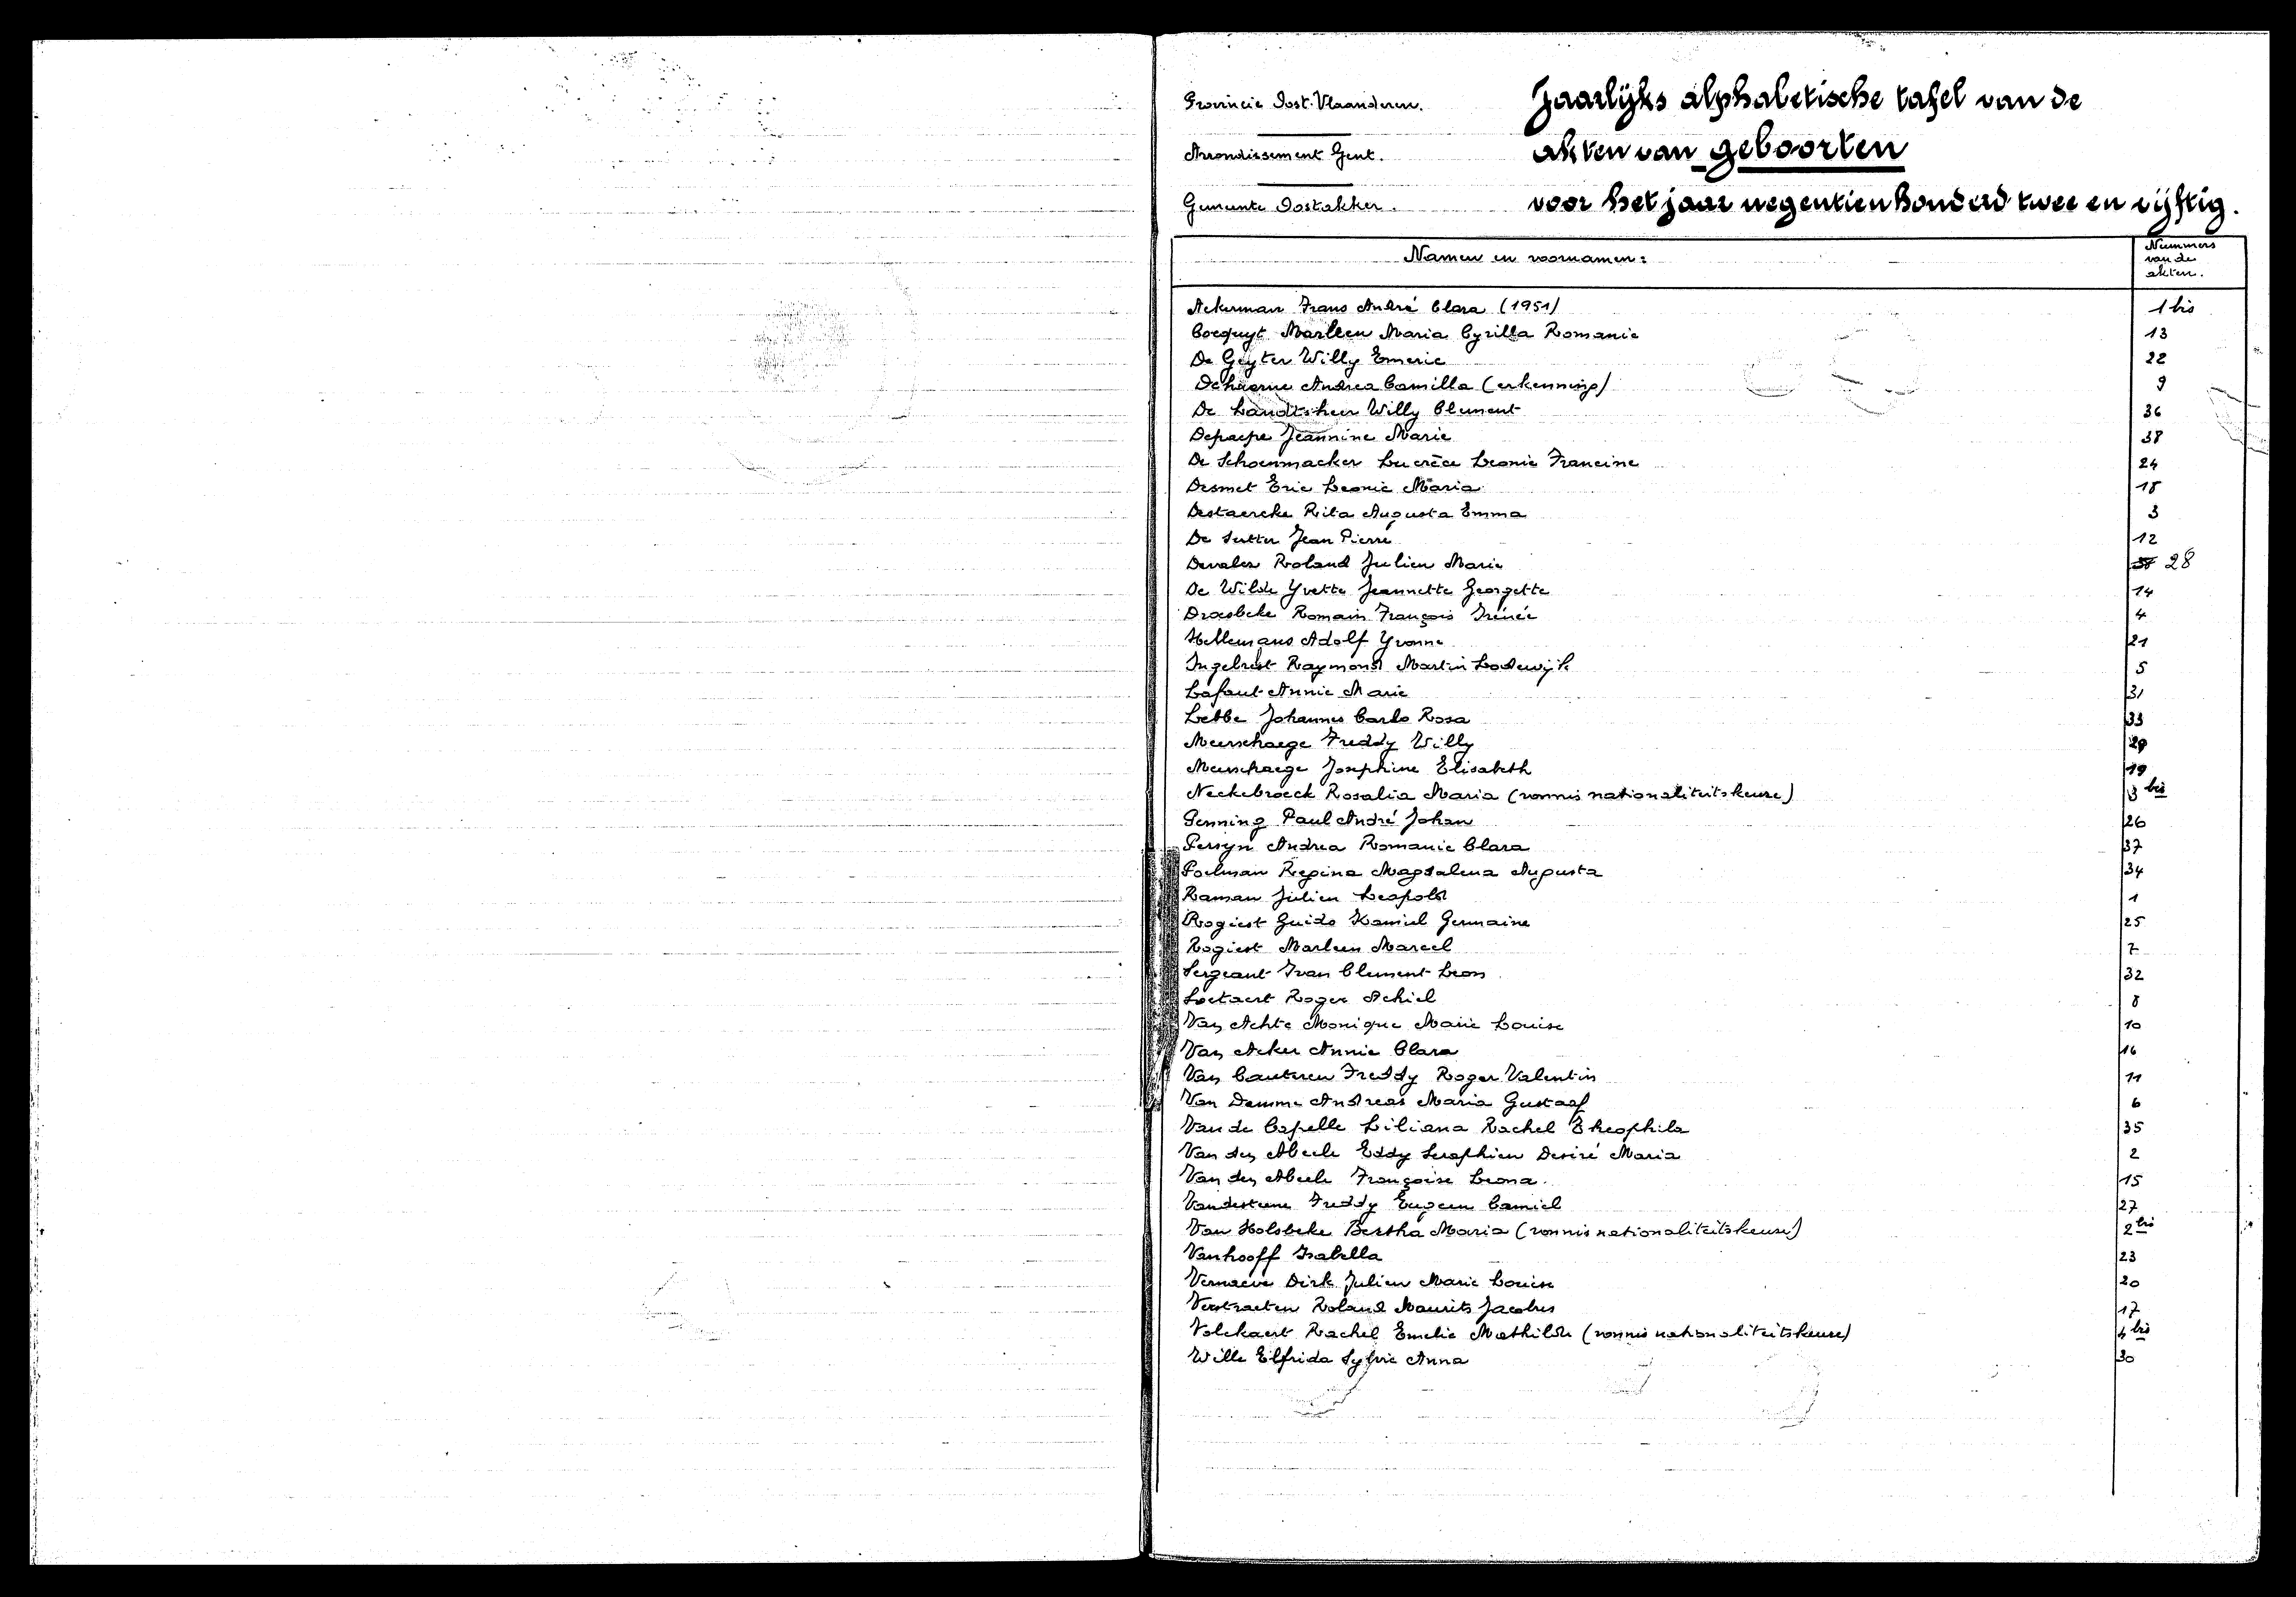 Provincie Oost-Vlaanderen.
Arrondissement Gent.
Gemeente Oostakker.
Jaarlijks alphabetische tafel van de
akten van geboorten
voor het jaar negentienhonderd twee en vijftig.
Namen en voornamen:
Nummers
van de
akten.
Ackerman Frans André Clara (1951) 1 bis
Cocquyt Marleen Maria Cyrilla Romanie 13
De Geyter Willy Emeric 22
Dehaerne Andrea Camilla (erkenning) 9
De Landtsheer Willy Clement 36
Depaepe Jeannine Marie 38
De Schoenmacker Lucrèce Leonie Francine 24
Desmet Eric Leonie Maria 18
Destaercke Rita Augusta Emma 3
De Sutter Jean Pierre 12
Devalez Roland Julien Marie 28
De Wilde Yvette Jeannette Georgette 14
Draesbeke Romain François Irénée 4
Hellemans Adolf Yvonne 21
Ingelrest Raymond Martin Lodewijk 5
Lafaut Annie Marie 31
Lebbe Johannes Carlo Rosa 33
Meerschaege Freddy Willy 29
Meerschaege Josephine Elisabeth 19
Neckebroeck Rosalia Maria (vonnis nationaliteitskeuze) 3 bis
Penning Paul André Johan 26
Persyn Andrea Romanie Clara 37
Poelman Regina Magdalena Augusta 34
Raman Julien Leopold 1
Rogiest Guido Kamiel Germaine 25
Rogiest Marleen Marcel 7
Sergeant Ivan Clement Leon 32
Soetaert Roger Achiel 8
Van Achte Monique Marie Louise 10
Van Acker Annie Clara 16
Van Cauteren Freddy Roger Valentin 11
Van Damme Andreas Maria Gustaaf 6
Van de Capelle Liliana Rachel Theophila 35
Van den Abeele Eddy Seraphien Desiré Maria 2
Van den Abeele Françoise Leona. 15
Vandesteene Freddy Eugeen Camiel 27
Van Holsbeke Bertha Maria (vonnis nationaliteitskeuze) 2 bis
Vanhooff Isabella 23
Vernaeve Dirk Julien Marie Louise 20
Verstraeten Roland Maurits Jacobus 17
Volckaert Rachel Emelie Mathilde (vonnis nationaliteitskeuze) 4 bis
Wille Elfrida Sylvie Anna 30